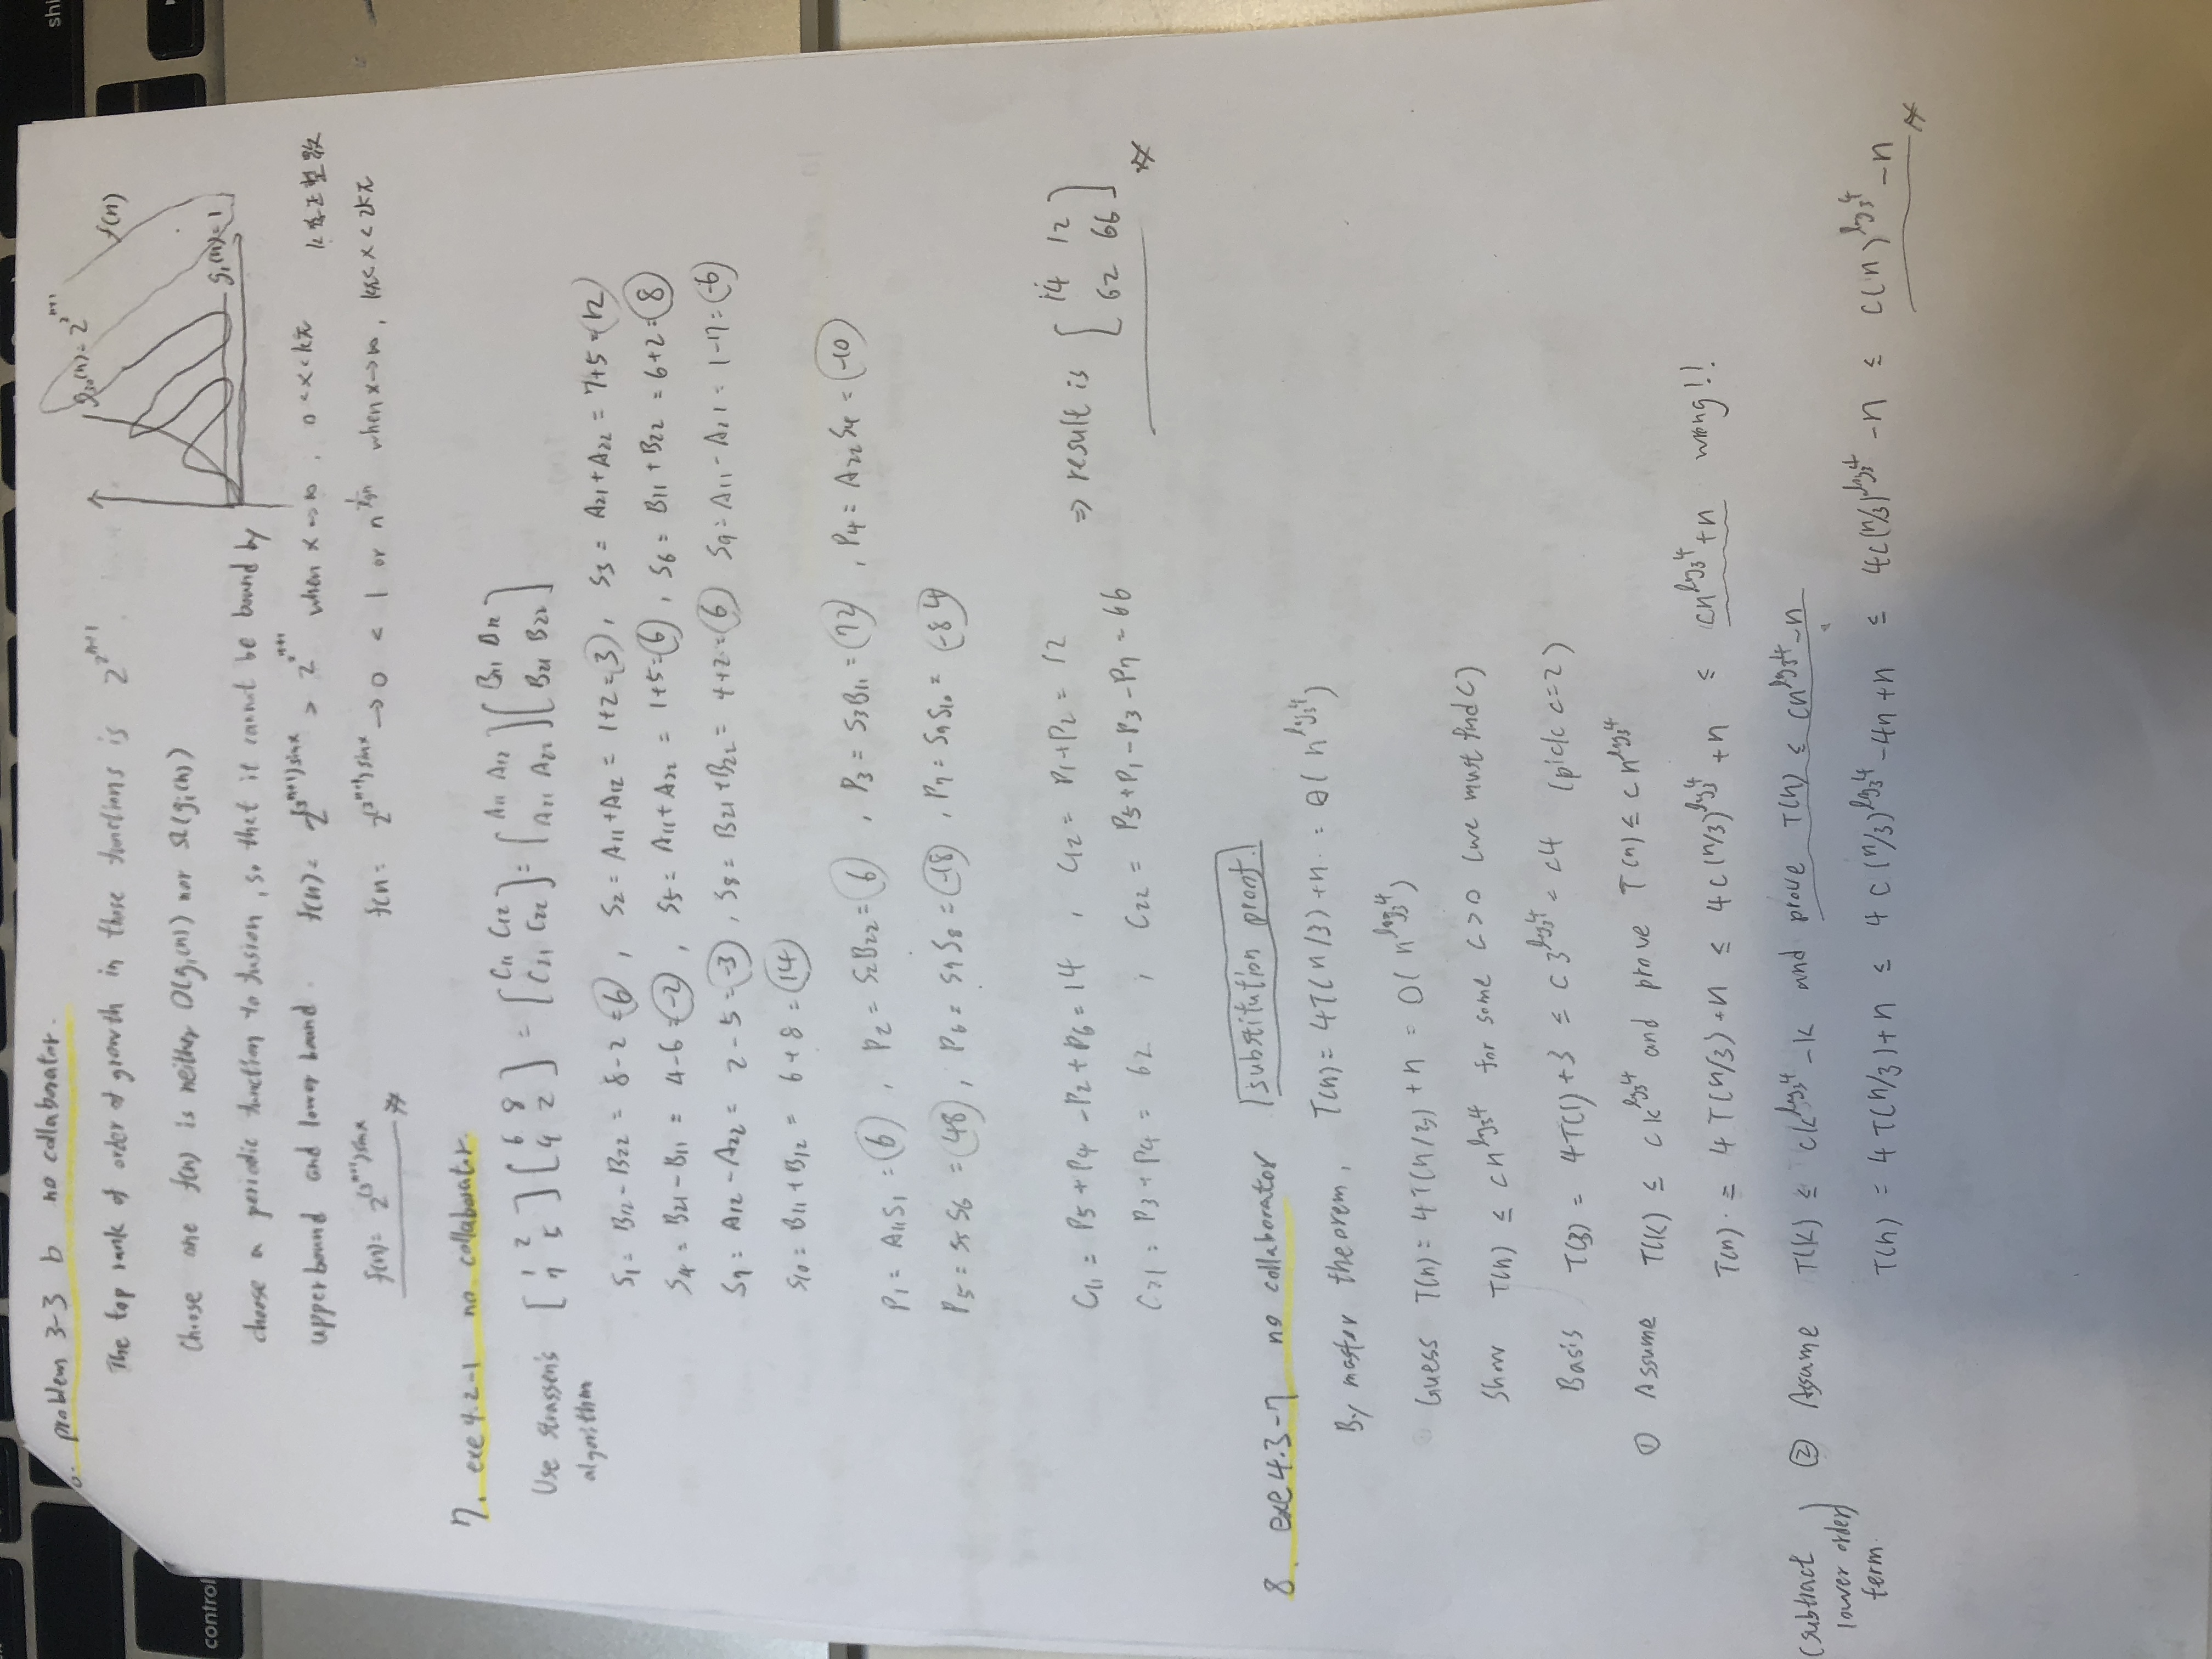 6. problem 3-3 b no collaborator.
The top rank of order of growth in those functions is 2^2^(n+1).
Choose one f(n) is neither O(gᵢ(n)) nor Ω(gᵢ(n))
choose a periodic function to fusion, so that it cannot be bound by
upperbound and lower bound. f(n) = 2^((3^(n+1)) sinx) > 2^2^(n+1) when x → ∞, 0 < x < kπ k為正整數
f(n) = 2^((3^(n+1)) sinx) f(n = 2^((3^(n+1)) sinx) → 0 < 1 or n^(1/lgn) when x→∞, kπ < x < 2kπ
g₃₀(n) = 2^2^(n+1)
f(n)
g₁(n) = 1
7. exe 4.2-1 no collaborator.
Use Strassen's algorithm [1 2; 7 5] [6 8; 4 2] = [C11 C12; C21 C22] = [A11 A12; A21 A22] [B11 B12; B21 B22]
S1 = B12 - B22 = 8-2 = 6, S2 = A11 + A12 = 1+2 = 3, S3 = A21 + A22 = 7+5 = 12
S4 = B21 - B11 = 4-6 = -2, S5 = A11 + A22 = 1+5 = 6, S6 = B11 + B22 = 6+2 = 8
S7 = A12 - A22 = 2-5 = -3, S8 = B21 + B22 = 4+2 = 6 S9 = A11 - A21 = 1-7 = -6
S10 = B11 + B12 = 6+8 = 14
P1 = A11S1 = 6, P2 = S2B22 = 6, P3 = S3B11 = 72, P4 = A22S4 = -10
P5 = S5S6 = 48, P6 = S7S8 = -18, P7 = S9S10 = -84
C11 = P5 + P4 - P2 + P6 = 14, C12 = P1 + P2 = 12
C21 = P3 + P4 = 62, C22 = P5 + P1 - P3 - P7 = 66
⇒ result is [14 12; 62 66]
8. exe 4.3-7 no collaborator substitution proof.
By master theorem, T(n) = 4T(n/3) + n = Θ(n^(log₃4))
Guess T(n) = 4T(n/3) + n = O(n^(log₃4))
Show T(n) ≤ cn^(log₃4) for some c > 0 (we must find c)
Basis T(3) = 4T(1) + 3 ≤ c3^(log₃4) = c4 (pick c=2)
① Assume T(k) ≤ ck^(log₃4) and prove T(n) ≤ cn^(log₃4)
T(n) = 4T(n/3) + n ≤ 4c(n/3)^(log₃4) + n ≤ cn^(log₃4) + n wrong!!
(subtract lower order term) ② Assume T(k) ≤ ck^(log₃4) - k and prove T(n) ≤ cn^(log₃4) - n
T(n) = 4T(n/3) + n ≤ 4c(n/3)^(log₃4) - 4n + n ≤ 4c(n/3)^(log₃4) - n ≤ c(n)^(log₃4) - n
control
shi